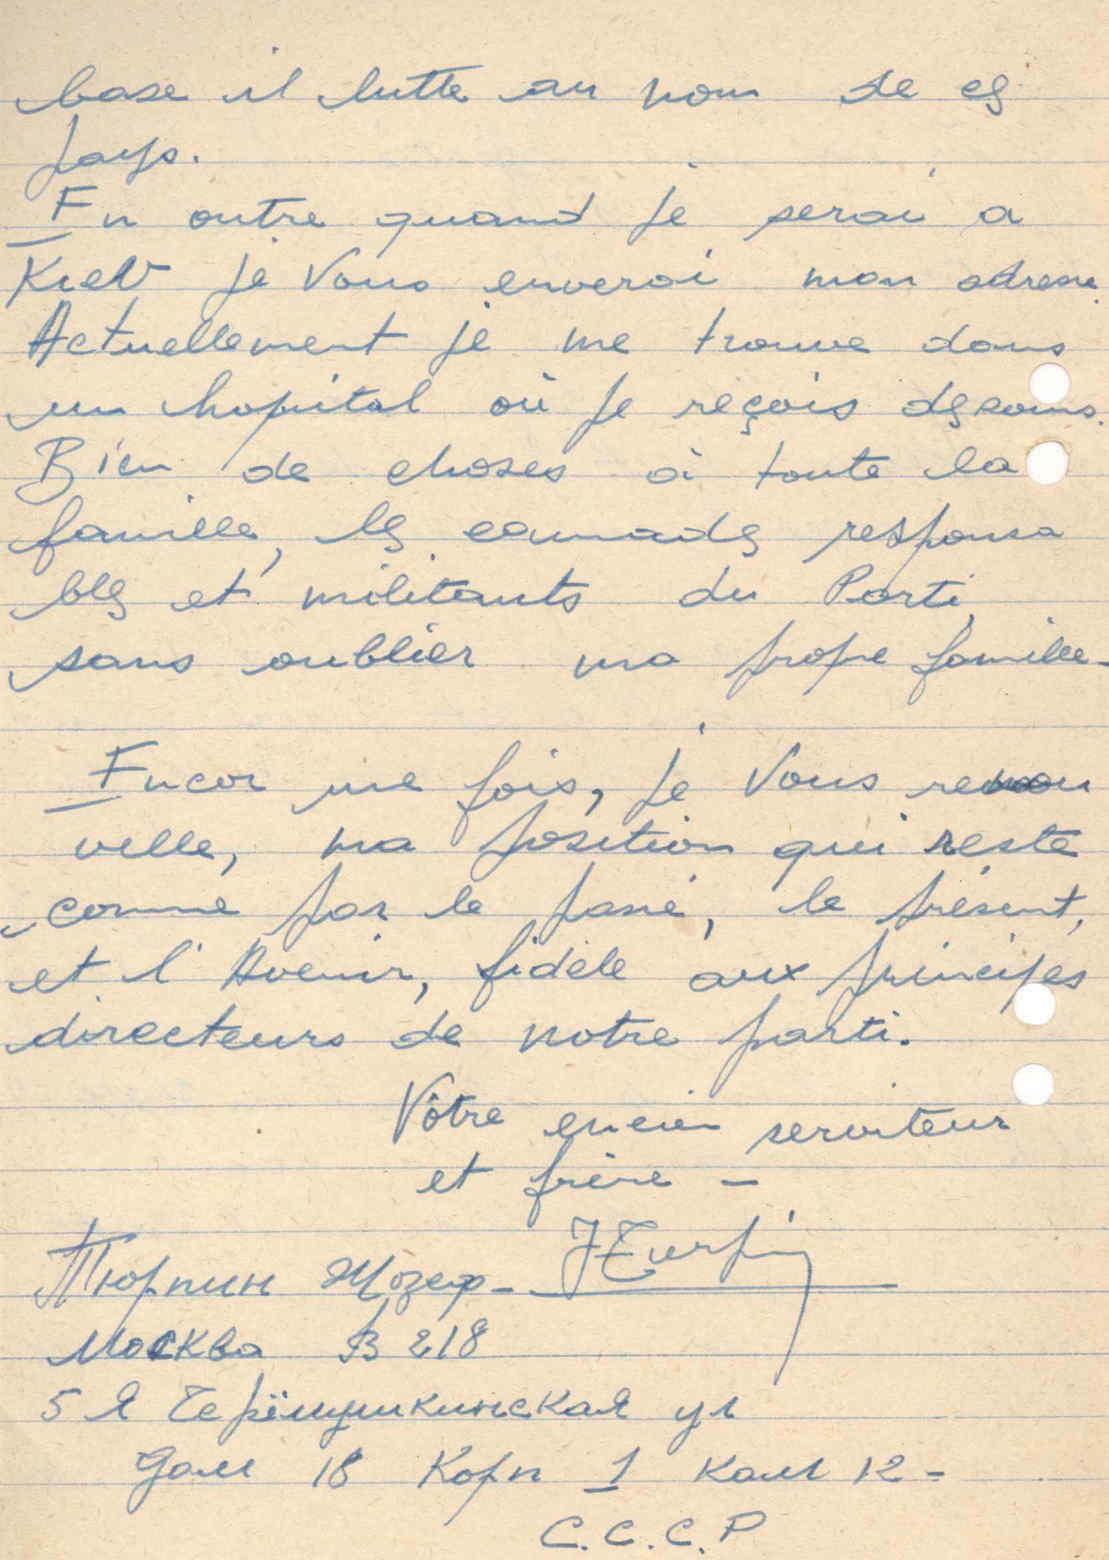 base il lutte au nom de ces
pays.
En outre quand je serai a
Kiev je Vous enverai mon adresse.
Actuellement je me trouve dans
un hopital où je reçois des soins.
Bien de choses à toute la
famille, les camades responsa
bles et militants du Parti,
sans oublier ma propre famille-
Encor une fois, je Vous renou
velle, ma position qui reste
comme par le passé, le présent,
et l'Avenir, fidèle aux principes
directeurs de notre parti.
Vôtre encien serviteur
et frère -
Тюрпин Жозеф - JTurpin
Москва В 218
5 Я Черёмушкинская ул
Дом 18 Корп 1 Ком 12 -
С.С.С.Р